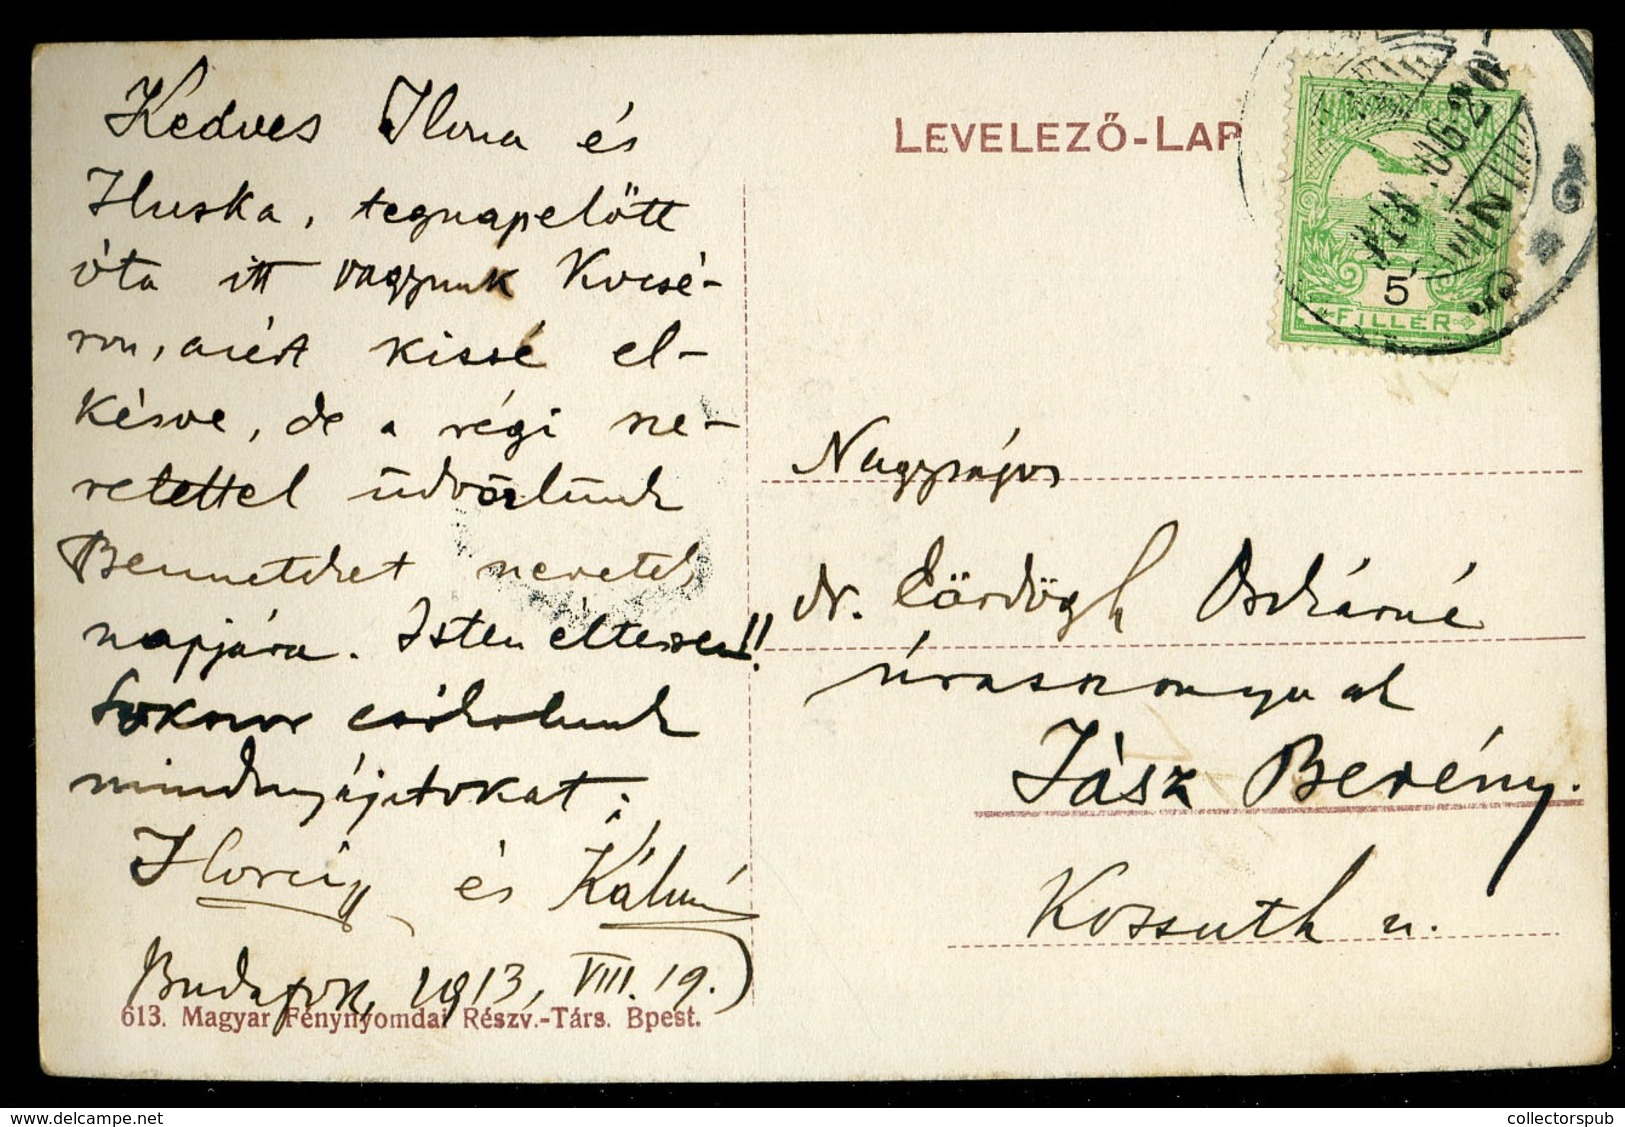 Kedves Ilona és
Iluska, tegnapelőtt
óta itt vagyunk Kocsé-
ron, azért kissé el-
késve, de a régi sze-
retettel üdvözlünk
Benneteket nevetek
napjára. Isten éltessen!!
Sokszor csókolunk
mindnyájatokat:
és Kálmán
Budafok, 1913, VIII. 19.)
613. Magyar Fénynyomdai Részv.-Társ. Bpest.
LEVELEZŐ-LAP
5
FILLÉR
Nagyságos
dr. Cördögh Oszkárné
úrasszonynak
Jász Berény.
Kossuth u.
collectorspub